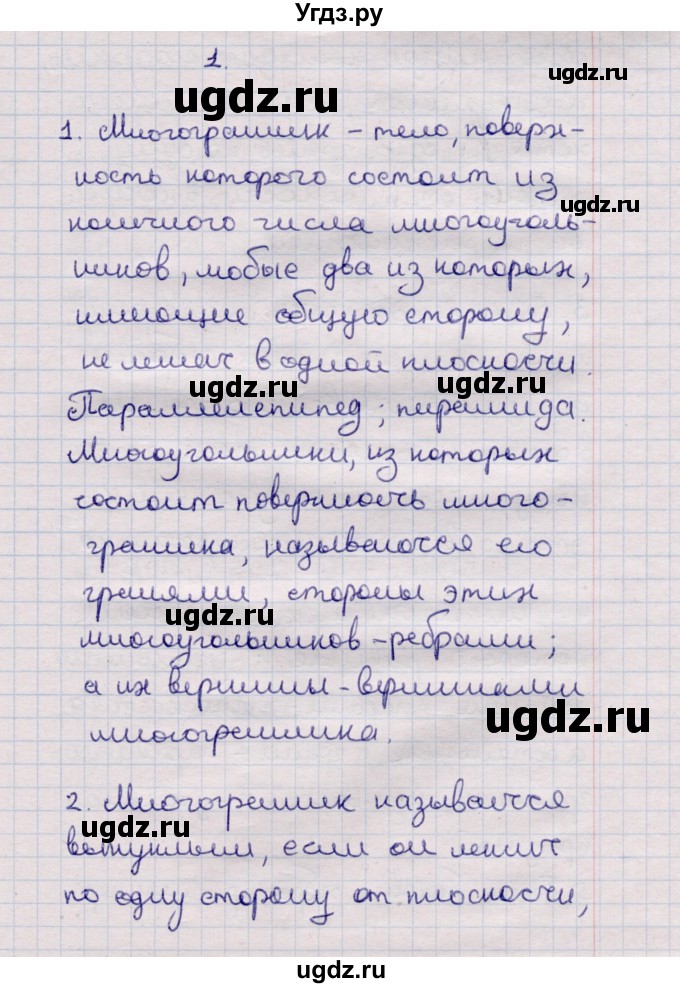 Угдз.ру
1.
ugdz.ru
ugdz.ru
1. Многогранник – тело, поверх-
ность которого состоит из
ugdz.ru
конечного числа многоуголь-
ников, любые два из которых,
имеющие общую сторону,
не лежат в одной плоскости.
ugdz.ru
ugdz.ru
Параллелепипед; пирамида.
Многоугольники, из которых
состоит поверхность много-
гранника, называются его
гранями, стороны этих
ugdz.ru
многоугольников – ребрами;
а их вершины – вершинами
ugdz.ru
многогранника.
2. Многогранник называется
ugdz.ru
выпуклым, если он лежит
по одну сторону от плоскости,
ugdz.ru